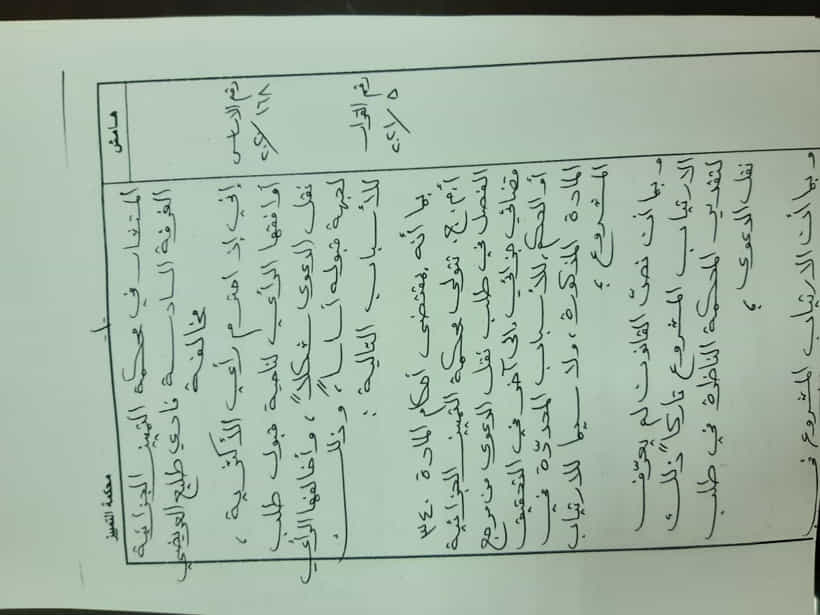 محكمة التمييز
هامش
- ١ -
رقم الاساس
١٦٨ /
رقم القرار
٥ / ٢٠٢١
المستشار في محكمة التمييز الجزائية
الغرفة السادسة فادي طليع العريضي
مخالفة
إني إذ احترم رأي الأكثرية،
أوافقها الرأي لناحية قبول طلب
نقل الدعوى شكلاً، وأخالفها الرأي
لجهة قبوله أساساً، وذلك
للأسباب التالية:
بما أنه بمقتضى أحكام المادة ٣٤٠
أ.م.ج. تتولى محكمة التمييز الجزائية
الفصل في طلب نقل الدعوى من مرجع
قضائي جزائي الى آخر في التحقيق
أو الحكم للأسباب المحددة في
المادة المذكورة، ولا سيما للارتياب
المشروع؛
وبما أن نصّ القانون لم يعرّف
الارتياب المشروع تاركاً ذلك
لتقدير المحكمة الناظرة في طلب
نقل الدعوى؛
وبما أن الارتياب المشروع